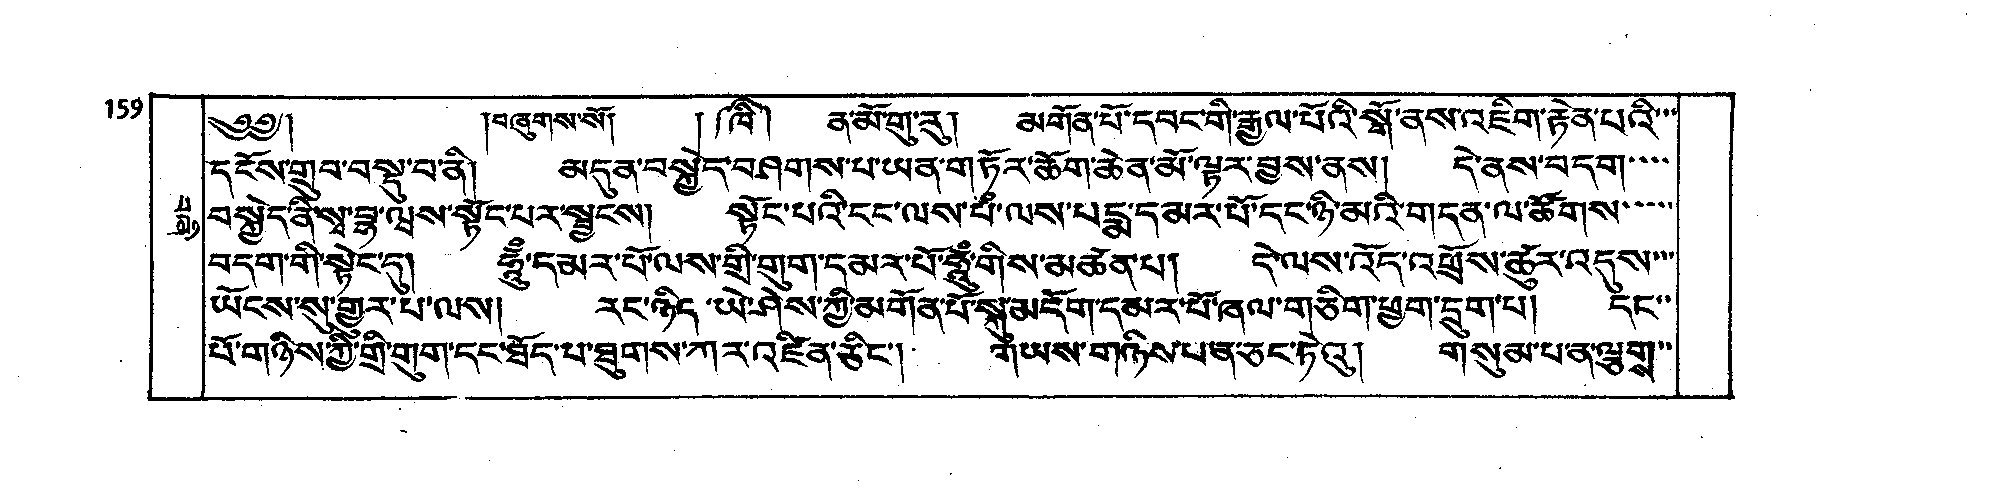 159
༄༅། །བཞུགས་སོ། ། ། ན་མོ་གུ་རུ། མགོན་པོ་དབང་གི་རྒྱལ་པོའི་སྒོ་ནས་འཇིག་རྟེན་པའི་
དངོས་གྲུབ་བསྡུ་བ་ནི། མདུན་བསྐྱེད་བཤགས་པ་ཡན་གཏོར་ཆོག་ཆེན་མོ་ལྟར་བྱས་ནས། དེ་ནས་བདག་
བསྐྱེད་ནི་སྭ་བྷཱ་ཝས་སྟོང་པར་སྦྱངས། སྟོང་པའི་ངང་ལས་པཾ་ལས་པདྨ་དམར་པོ་དང་ཉི་མའི་གདན་ལ་ཚོགས་
བདག་གི་སྟེང་དུ། ཧཱུྃ་དམར་པོ་ལས་གྲི་གུག་དམར་པོ་ཧཱུྃ་གིས་མཚན་པ། དེ་ལས་འོད་འཕྲོས་ཚུར་འདུས་
ཡོངས་སུ་གྱུར་པ་ལས། རང་ཉིད་ཡེ་ཤེས་ཀྱི་མགོན་པོ་སྐུ་མདོག་དམར་པོ་ཞལ་གཅིག་ཕྱག་དྲུག་པ། དང་
པོ་གཉིས་ཀྱི་གྲི་གུག་དང་ཐོད་པ་ཐུགས་ཀར་འཛིན་ཅིང་། གཡས་གཉིས་པ་ན་ཅང་ཏེའུ། གསུམ་པ་ན་